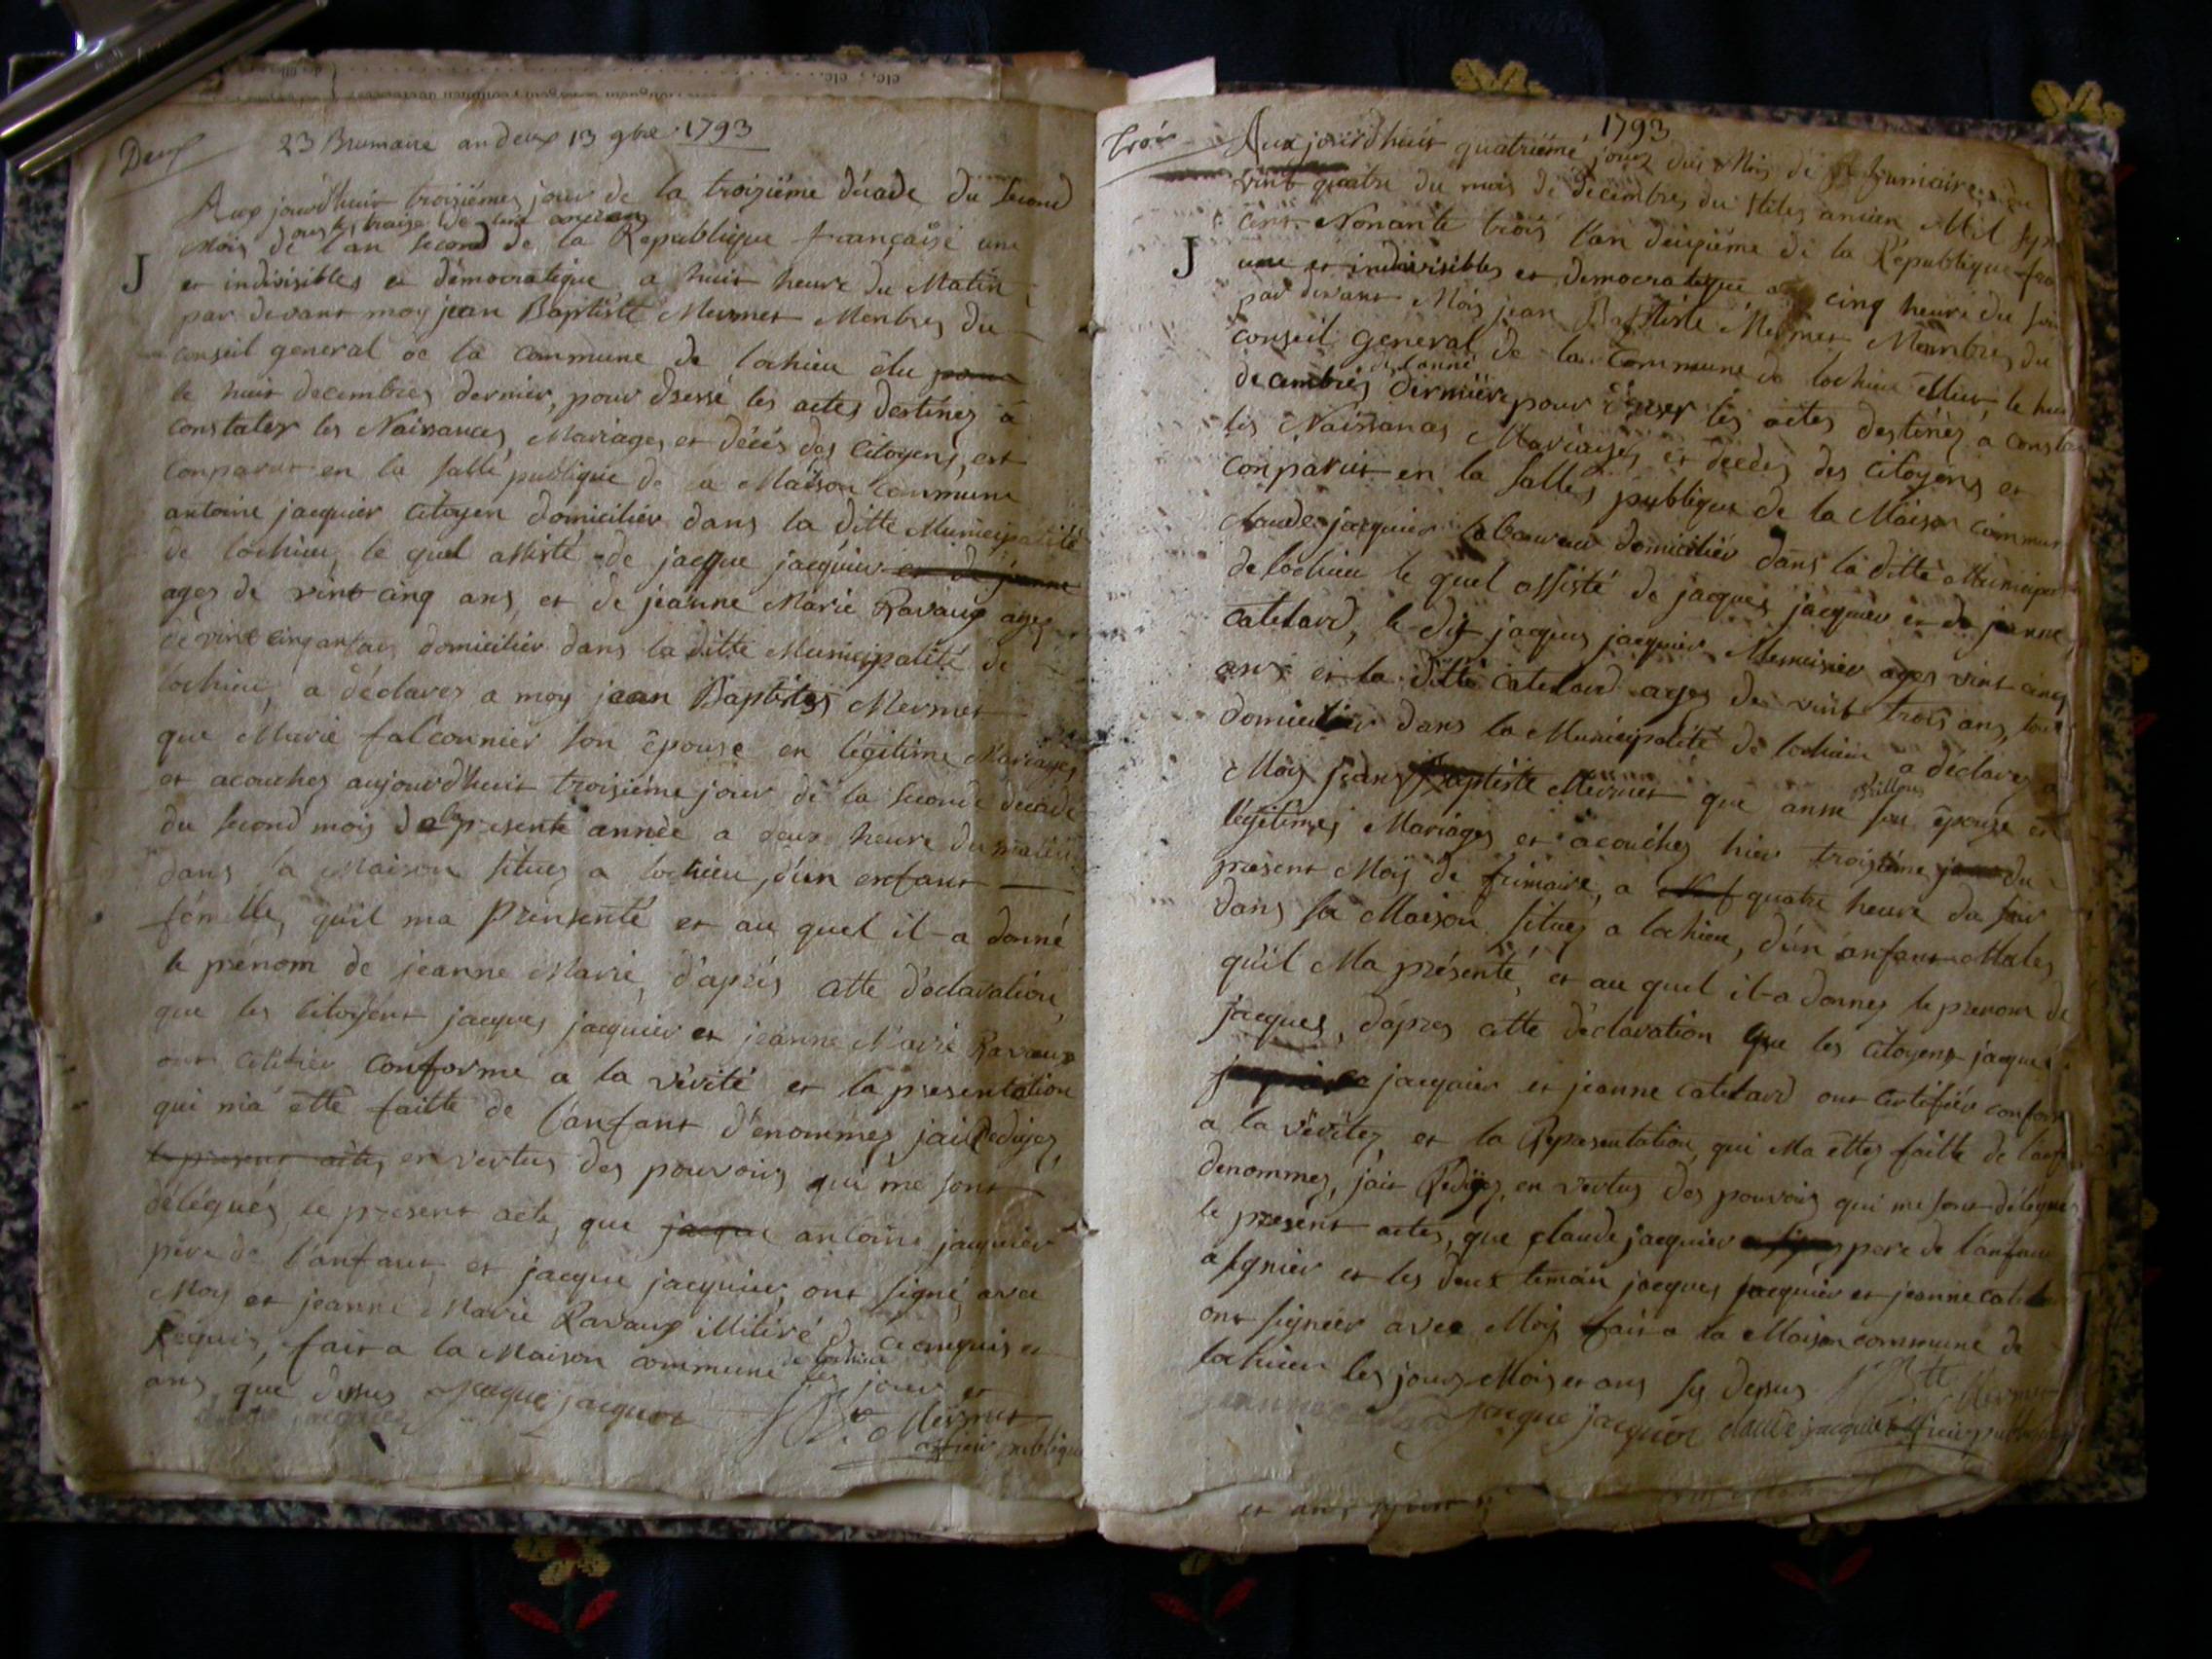 Deux
23 Brumaire an deux 13 9bre 1793
Aux jourdhuit troisiéme jour de la troisiéme décade du second
mois de l'an second de la République française une
et indivisibles et démocratique a huit heure du Matin
par devant moy jean Baptiste Mermet Menbres du
conseil general de la commune de lochieu élu pour
le huit decembres dernier, pour dressé les actes destinés à
constater les Naissances, Mariages et décés des Citoyens, est
conparut en la salle publique de la Maison commune
antoine jacquier Citoyen domiciliér dans la ditte Municipalité
de lochieu, le quel assisté de jacque jacquier et de jeanne
ages de vint cinq ans, et de jeanne Marie Ravaux ages
de vint cinq ans domicilier dans la ditte Municipalité de
lochieu, a déclarer a moy jean Baptistes Mermet
que Marie falconnier son épouse en légitime Mariages
et acouches aujourd'huit troisiéme jour de la seconde decade
du second mois de la presente année a deux heure du matin
dans la Maison situes a lochieu, d'un enfant
fémelle, qu'il ma présenté et au quel il a donné
le prénom de jeanne Marie, d'aprés cette déclaration,
que les Citoyens jacques jacquier et jeanne Marie Ravaux
ont certifier conforme a la vérité et la presentation
qui m'a etté faitte de l'anfant dénommés, jai Rediges,
le present actes en vertus des pouvoirs qui me sont
délégués, le present acte, que jacque antoine jacquier
pére de l'anfant, et jacque jacquier, ont signé avec
Moy et jeanne Marie Ravaux illitiré de ce enquis et
Requis, fait a la Maison commune de lochieu les jour et
ans que dessus jacque jacquier
JBte Mermet
officier publique
Trois
1793
J
Aux jourdhuit quatriéme jour du Mois de frimaire
vint quatre du mois de decembres du stiles ancien Mil sept
cent Nonante trois l'an deuxiéme de la République
une et indivisibles et democratique a cinq heure du soir
par devant Mois jean Baptiste Mermet Membres du
conseil general de la commune de lochieu le huit
decembres dernière pour dresser les actes destinés a
les Naissances Mariages et décés des Citoyens et
conparut en la salles publique de la Maison commun
claude jacquier laboureur domiciliér dans la ditte
de lochieu le quel assisté de jacques jacquier et de jeanne
catelard, le dit jacques jacquier ages vint cinq
ans et la ditte catelard ages de vint trois ans, tous
domicilier dans la Municipalité de lochieu a déclarer a
Mois jean Baptiste Mermet que anne son épouse en
légitimes Mariages et acouches hier troisiéme jour du
présent Mois de frimaire, a quatre heure du soir
dans sa Maison situes a lochieu, d'un anfant Males
qu'il Ma présenté, et au quel il a donnes le prenom de
jacques, d'apres cette déclaration que les Citoyens jacques
jacquier et jeanne catelard ont certifiér
a la véritez, et la Representation qui Ma ettes faitte de
denommes, jait Rediges, en vertus des pouvoirs qui me sont délégués
le présent actes, que claude jacquier pere de l'anfant
a signier et les deux temain jacques jacquier et jeanne
ont signiér avec Mois fait a la Maison commune de
lochieu les jours Mois et ans sus dessus
jacque jacquier claude jacquier